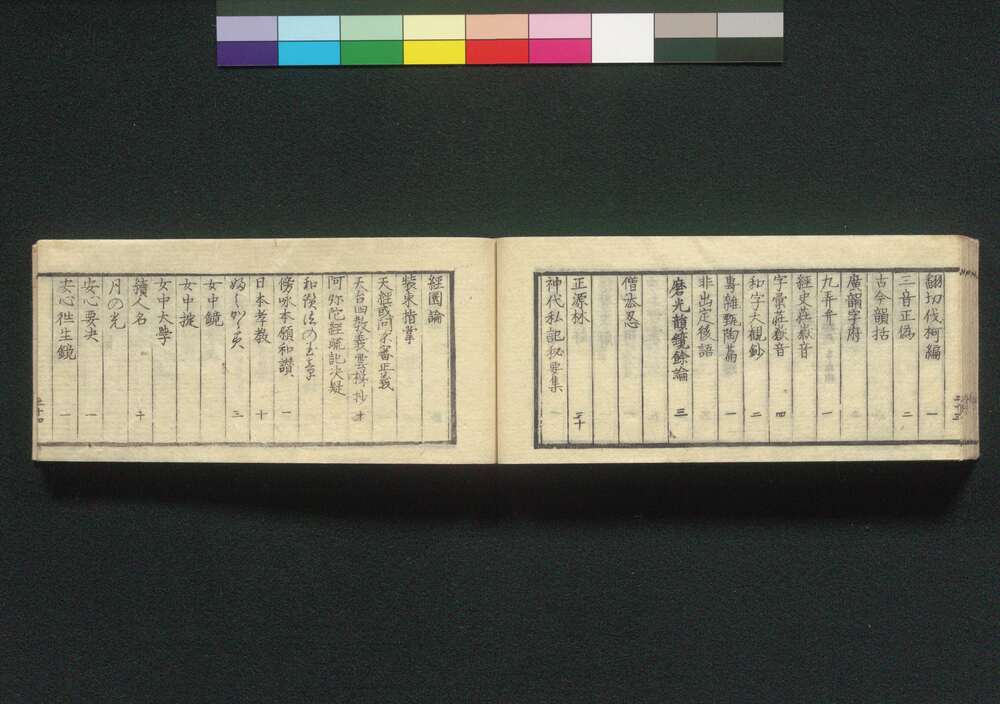 翻切伐柯編 一
三音正譌 二
古今韻括
廣韻字府
九弄弁 一
經史荘嶽音
字彙莊嶽音 四
和字大観鈔 二
專離甄陶篇 一
非出定後語
磨光韻鏡餘論 三
僧忞忍 一
正源林 三十
神代私記秘要集 一
經國論
裝束指掌
天經或問
天台四教義
阿弥陀經疏記决疑
傍咏本願和讃 一
日本孝教 十
女中鏡
女中掟
女中大學
續人名 十
月の光
安心要决 一
安心徃生鏡 一